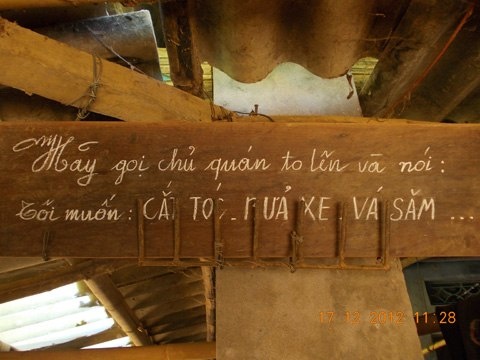 Hãy gọi chủ quán to lên và nói :
Tôi muốn : CẮT TÓC . RỬA XE . VÁ SĂM ...
17 12 2012 11:28